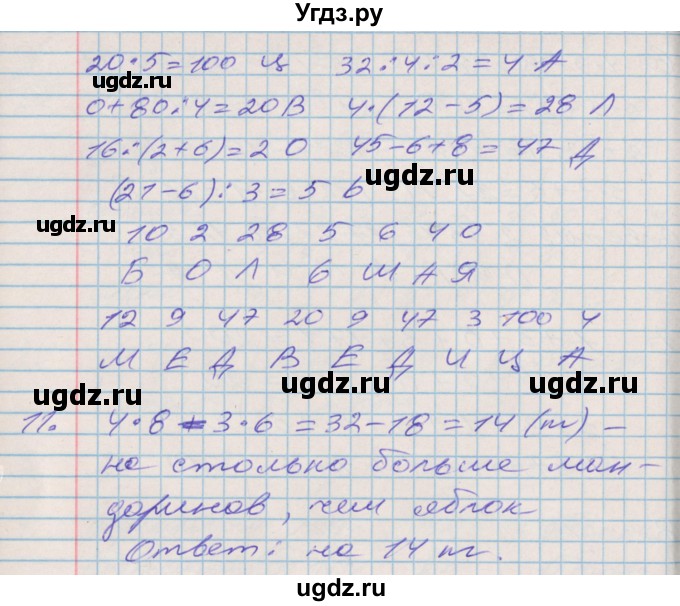 Угдз.ру
20·5=100 Ц 32:4:2=4 А
ugdz.ru
0+80:4=20 В 4·(12-5)=28 Л
16:(2+6)=2 О 45-6+8=47 Д
ugdz.ru
(21-6):3=5 Ь
ugdz.ru
10 2 28 5 6 40
Б О Л Ь Ш А Я
12 9 47 20 9 47 3 100 4
М Е Д В Е Д И Ц А
ugdz.ru ugdz.ru ugdz.ru
11. 4·8-3·6=32-18=14 (т) -
на столько больше ман-
даринов, чем яблок
ugdz.ru ugdz.ru
Ответ: на 14 т.
ugdz.ru
Угдз.ру